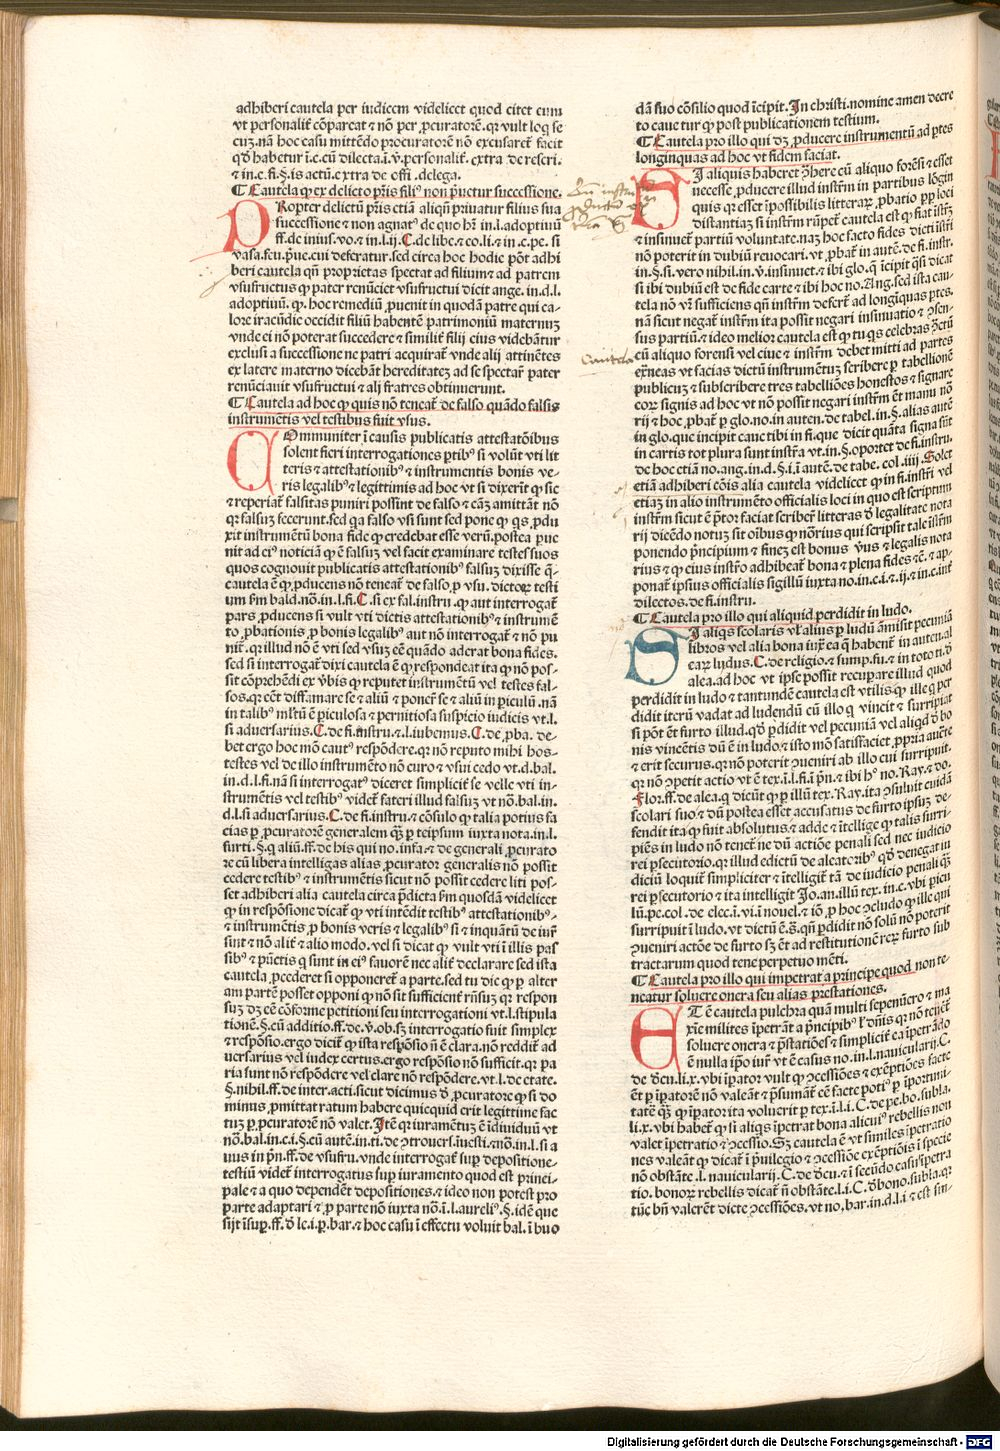 adhiberi cautela per iudicem videlicet quod citet eum
vt personalit̃ cõpareat ⁊ nõ per ꝓcuratorẽ. qꝛ vult loq̃ se
cuʒ. nã hoc casu mittẽdo procuratorẽ nõ excusaret̃ facit
qđ habetur ĩ.c.cũ dilecta.ĩ.v̓.personalit̃. extra de rescri.
⁊ in.c.fi.§.is actũ.extra de offi .delega.
¶ Cautela ꝙ ex delicto pr̃is filiꝰ non p̃uetur successione.
PRopter delictũ pr̃is etiã aliqñ priuatur filius sua
successione ⁊ non agnatꝰ de quo hr̃ in.l.adoptiuũ
ff.de inius.vo.⁊ in.l.ij.C.de libe.⁊ eo.li.⁊ in.c.pe.si
vasa.feu.p̃ue.cui deferatur.sed circa hoc hodie põt adhi
beri cautela qñ proprietas spectat ad filium ⁊ ad patrem
vsufructus ꝙ pater renũciet vsufructui dicit ange.in.d.l.
adoptiuũ. ꝙ hoc remediũ ꝓuenit in quodã patre qui ca-
lore iracũdie occidit filiũ habentẽ patrimoniũ maternuʒ
vnde ei nõ poterat succedere ⁊ similit̃ filij eius videbãtur
exclusi a successione ne patri acquirat̃ vnde alij attinẽtes
ex latere materno dicebãt hereditateʒ ad se spectar̃ pater
renũciauit vsufructui ⁊ alij fratres obtinuerunt.
¶ Cautela ad hoc ꝙ quis nõ teneat̃ de falso quãdo falsis
instrumẽtis vel testibus fuit vsus.
COmmuniter ĩ causis publicatis attestatõibus
solent fieri interrogationes ꝑtibꝰ si volũt vti lit
teris ⁊ attestationibꝰ ⁊ instrumentis bonis ve-
ris legalibꝰ ⁊ legittimis ad hoc vt si dixerĩt ꝙ sic
⁊ reperiat̃ falsitas puniri possint de falso ⁊ cãʒ amittãt nõ
qꝛ falsuʒ fecerunt.sed qꝛ falso vsi sunt sed pone ꝙ qs ꝓdu
xit instrumẽtũ bona fide ꝙ credebat esse verũ.postea ꝑue
nit ad eiꝰ noticiã ꝙ ẽ falsuʒ vel facit examinare testes suos
quos cognouit publicatis attestationibꝰ falsuʒ dixisse q̃-
cautela ẽ ꝙ ꝓducens nõ teneat̃ de falso ꝓ vsu. dictoꝝ testi
um fm bald.nõ.in.l.fi.C.si ex fal.instru.ꝙ aut interrogat̃
pars ꝓducens si vult vti dictis attestationibꝰ ⁊ instrumẽ
to ꝓbationis ꝓ bonis legalibꝰ aut nõ interrogat̃ ⁊ nõ pu
nit̃. qꝛ illud nõ ẽ vti sed vsuʒ eẽ quãdo aderat bona fides.
sed si interrogat̃ dixi cautela ẽ ꝙ respondeat ita ꝙ nõ pos-
sit cõprehẽdi ex v̓bis ꝙ reputet instrumẽtũ vel testes fal-
sos.qꝛ eẽt diffamare se ⁊ aliũ ⁊ poner̃ se ⁊ aliũ in ꝑiculũ.nã
in talibꝰ ml̃tũ ẽ ꝑiculosa ⁊ pernitiosa suspicio iudicis vt.l.
si aduersarius.C.de fi.instru.⁊.l.iubemus.C.de.ꝓba. de-
bet ergo hoc mõ cautꝰ respõdere.qꝛ nõ reputo mihi hos-
testes vel de illo instrumẽto nõ curo ⁊ vsui cedo vt.d.bal.
in.d.l.fi.nã si interrogatꝰ diceret simplicit̃ se velle vti in-
strumẽtis vel testibꝰ videt̃ fateri illud falsuʒ vt nõ.bal.in.
d.l.si aduersarius.C.de fi.instru.⁊ cõsulo ꝙ talia potius fa
cias ꝑ ꝓcuratorẽ generalem q̃ʒ ꝑ teipsum iuxta nota.in.l.
furti.§.q̃ aliũ.ff.de his qui no.infa.⁊ de generali ꝓcurato
re cũ libera intelligas alias ꝓcurator generalis nõ possit
cedere testibꝰ ⁊ instrumẽtis sicut nõ possit cedere liti pos-
set adhiberi alia cautela circa p̃dicta fm quosdã videlicet
ꝙ in respõsione dicat̃ ꝙ vti intẽdit testibꝰ attestationibꝰ-
⁊ instrumẽtis ꝓ bonis veris ⁊ legalibꝰ si ⁊ inquãtũ de iur̃
sunt ⁊ nõ alit̃ ⁊ alio modo.vel si dicat ꝙ vult vti ĩ illis pas
sibꝰ ⁊ pũctis q̃ sunt in eiꝰ fauorẽ nec alit̃ declarare sed ista
cautela ꝓcederet si opponeret̃ a parte.sed tu dic ꝙ ꝑ alter
am partẽ posset opponi ꝙ nõ sit sufficient̃ rñsuʒ qꝛ respon
suʒ dʒ eẽ cõforme petitioni seu interrogationi vt.l.stipula
tionẽ.§.cũ additio.ff.de.v̓.ob.sʒ interrogatio fuit simplex
⁊ respõsio.ergo dicit̃ ꝙ ista respõsio ñ ẽ clara.nõ reddit̃ ad
uersarius vel iudex certus.ergo respõsio nõ sufficit.qꝛ pa
ria sunt nõ respõdere vel clare nõ respõdere.vt.l.de etate.
§.nihil.ff.de inter.acti.sicut dicimus đ ꝓcuratore ꝙ si do
minus ꝓmittat ratum habere quicquid erit legittime fac
tuʒ ꝑ ꝓcuratorẽ nõ valet.Itẽ qꝛ iuramẽtuʒ ẽ ĩdiuiduũ vt
nõ.bal.in.c.i.§.cũ autẽ.in.ti.de ↄtrouerś.ĩuesti.⁊ nõ.in.l.si a
uus in pñ.ff.de vsufru.vnde interrogat̃ suꝑ depositione-
testiũ videt̃ interrogatus suꝑ iuramento quod est princi-
pale ⁊ a quo dependẽt depositiones ⁊ ideo non potest pro
parte adaptari ⁊ ꝓ parte nõ iuxta nõ.ĩ.l.aureliꝰ.§.idẽ que
sijt ĩsuꝑ.ff.đ le.i.ꝑ.bar.⁊ hoc casu ĩ effectu voluit bal.ĩ buo
dã suo cõsilio quod ĩcipit.In christi.nomine amen decre
to caue tur ꝙ post publicationem testium.
¶ Cautela pro illo qui dʒ ꝓducere instrumentũ ad ptes
longinquas ad hoc vt fidem faciat.
SI aliquis haberet ↄ̃here cũ aliquo forẽsi ⁊ esset
necesse ꝓducere illud instr̃m in partibus lõgin
quis qꝛ esset ĩpossibilis litteraꝝ ꝓbatio ꝓp loci
distantiaʒ si instr̃m rũꝑet̃ cautela est ꝙ fiat istr̃ʒ
⁊ insinuet̃ partiũ voluntate.naʒ hoc facto fides dicti istri
nõ poterit in dubiũ reuocari.vt ꝓbat̃ in autẽ.de fi.instr.
in.§.si.vero nihil.in.v̓.insinuet.⁊ ibi glo.q̃ ĩcipit q̃si dicat
si ibi dubiũ est de fide carte ⁊ ibi hoc no.Ang.sed ista cau-
tela nõ vʒ sufficiens qñ instr̃m defert̃ ad longĩquas ptes.
nã sicut negat̃ instr̃m ita possit negari insinuatio ⁊ ↄsen-
sus partiũ.⁊ ideo melior cautela est ꝙ tu qꝛ celebras ↄ̃ctũ
cũ aliquo forensi vel ciue ⁊ instr̃m debet mitti ad partes
ext̃neas vt facias dictũ instrumẽtuʒ scribere ꝑ tabellionẽ
publicuʒ ⁊ subscribere tres tabelliões honestos ⁊ signare
coꝝ signis ad hoc vt nõ possit negari instr̃m eẽt manu nõ
rij ⁊ hoc ꝓbat̃ ꝑ glo.no.in auten.de tabel.in.§.alias autẽ
in glo.que incipit cauc tibi in fi.que dicit quãta signa sũt
in cartis tot plura sunt instr̃a vt.in.§.oportet de fi.instru.
de hoc etiã no.ang.in.d.§.i.ĩ autẽ.de tabe. col.iiij. Solet
etiã adhiberi cõis alia cautela videlicet ꝙ in fi.instr̃i vel
etiaʒ in alio instrumẽto officialis loci in quo est scriptum
instr̃m sicut ẽ p̃tor faciat scriber̃ litteras đ legalitate nota
rij dicẽdo notuʒ sit oĩbus ꝙ nõrius qui scripsit tale ĩstr̃m
ponendo p̃ncipium ⁊ fineʒ est bonus vus ⁊ legalis nota
rius ⁊ ꝙ eius instr̃o adhibeat̃ bona ⁊ plena fides ⁊c̃. ⁊ ap-
ponat̃ ipsius officialis sigillũ iuxta no.in.c.i.⁊.ij.⁊ in.c.int̃
dilectos.de fi.instru.
¶ Cautela pro illo qui aliquid perdidit in ludo.
SI aliqs scolaris vł alius ꝑ ludũ ãmisit pecuniã
libros vel alia bona iux̃ ea q̃ habent̃ in auten.al
eaꝝ ludus.C.de religio.⁊ sump.fu.⁊ in toto ti.đ
alea.ad hoc vt ipse possit recuꝑare illud quod
perdidit in ludo ⁊ tantundẽ cautela est vtilis.ꝙ ille q̃ per
didit iterũ vadat ad ludendũ cũ illo q̃ vincit ⁊ surripiat
si põt eẽt furto illud.qđ ꝑdidit vel pecuniã vel aliqđ đ bo
nis vincẽtis dũ ẽ in ludo.⁊ isto mõ satisfaciet ꝓpria auẽte
⁊ erit securus.qꝛ nõ poterit ↄueniri ab illo cui surripuit.
qꝛ nõ ↄpetit actio vt ẽ tex.ĩ.l.fi.ĩ pñ.⁊ ibi hꝰ no.Ray.⁊ do.
Flor.ff.de alea.q̃ dicũt ꝙ ꝑ illũ tex.Ray.ita ↄsuluit cuidã
scolari suo ⁊ dũ postea esset accusatus de furto ipsuʒ de-
fendit ita ꝙ fuit absolutus.⁊ adde ⁊ ĩtellige ꝙ talis surri-
piẽs in ludo nõ tenet̃ ne dũ actiõe penali sed nec iudicio
rei ꝑsecutorio.qꝛ illud edictũ de aleatoribꝰ qđ denegat iu
diciũ loquit̃ simpliciter ⁊ ĩtelligit̃ tã de iudicio penali q̃ʒ
rei ꝑsecutorio ⁊ ita intelligit Jo.an.illũ tex.in.c.vbi ꝑicu
lũ.pe.col.de elec.ĩ.vi.ĩ nouel.⁊ iõ ꝓ hoc ↄcludo ꝙ ille qui
surripuit ĩ ludo.vt dictũ ẽ.s̃.qñ ꝑdidit nõ solũ nõ poterit
ↄueniri actõe de furto sʒ eẽt ad restitutionẽ reꝝ furto sub
tractarum quod tene perpetuo mẽti.
¶ Cautela pro illo qui impetrat a principe quod non te-
neatur soluere onera seu alias prestationes.
ET ẽ cautela pulchra quã multi sepenũero ⁊ ma
xĩe milites ĩpetrãt a p̃ncipibꝰ ł dñis qꝛ nõ tenẽt̃
soluere onera ⁊ p̃statiões ⁊ simplicit̃ ea ĩpetrãdo
ẽ nulla ip̃o iur̃ vt ẽ casus no.in.l.nauicularij.C.
de đcu.li.x.vbi ĩꝑator vult ꝙ ↄcessiões ⁊ exẽptiões facte
ẽt ꝑ ĩꝑatorẽ nõ valeãt ⁊ p̃sumãt̃ eẽ facte potiꝰ ꝑ ĩportuni-
tatẽ q̃ʒ ꝙ ĩꝑator ita voluerit ꝑ tex.ĩ.l.i.C.de pe.bo.subla.
li.x.vbi habet̃ ꝙ si aliqs ĩpetrat bona alicuiꝰ rebellis non
valet ĩpetratio ⁊ ↄcessio.Sʒ cautela ẽ vt similes ĩpetratio
nes valeãt ꝙ dicat̃ ĩ p̃uilegio ⁊ ↄcessiõe exẽptiõis ĩ specie
nõ obstãte .l. nauicularij.C.de đcu.⁊ ĩ secũdo casu ĩpetra
tio. bonoꝝ rebellis dicat̃ ñ obstãte.l.i.C.đ bono.subla.qꝛ
tũc bñ valerẽt dicte ↄcessiões.vt no.bar.in.d.l.i ⁊ est sin-
cautela
Digitalisierung gefördert durch die Deutsche Forschungsgemeinschaft - DFG